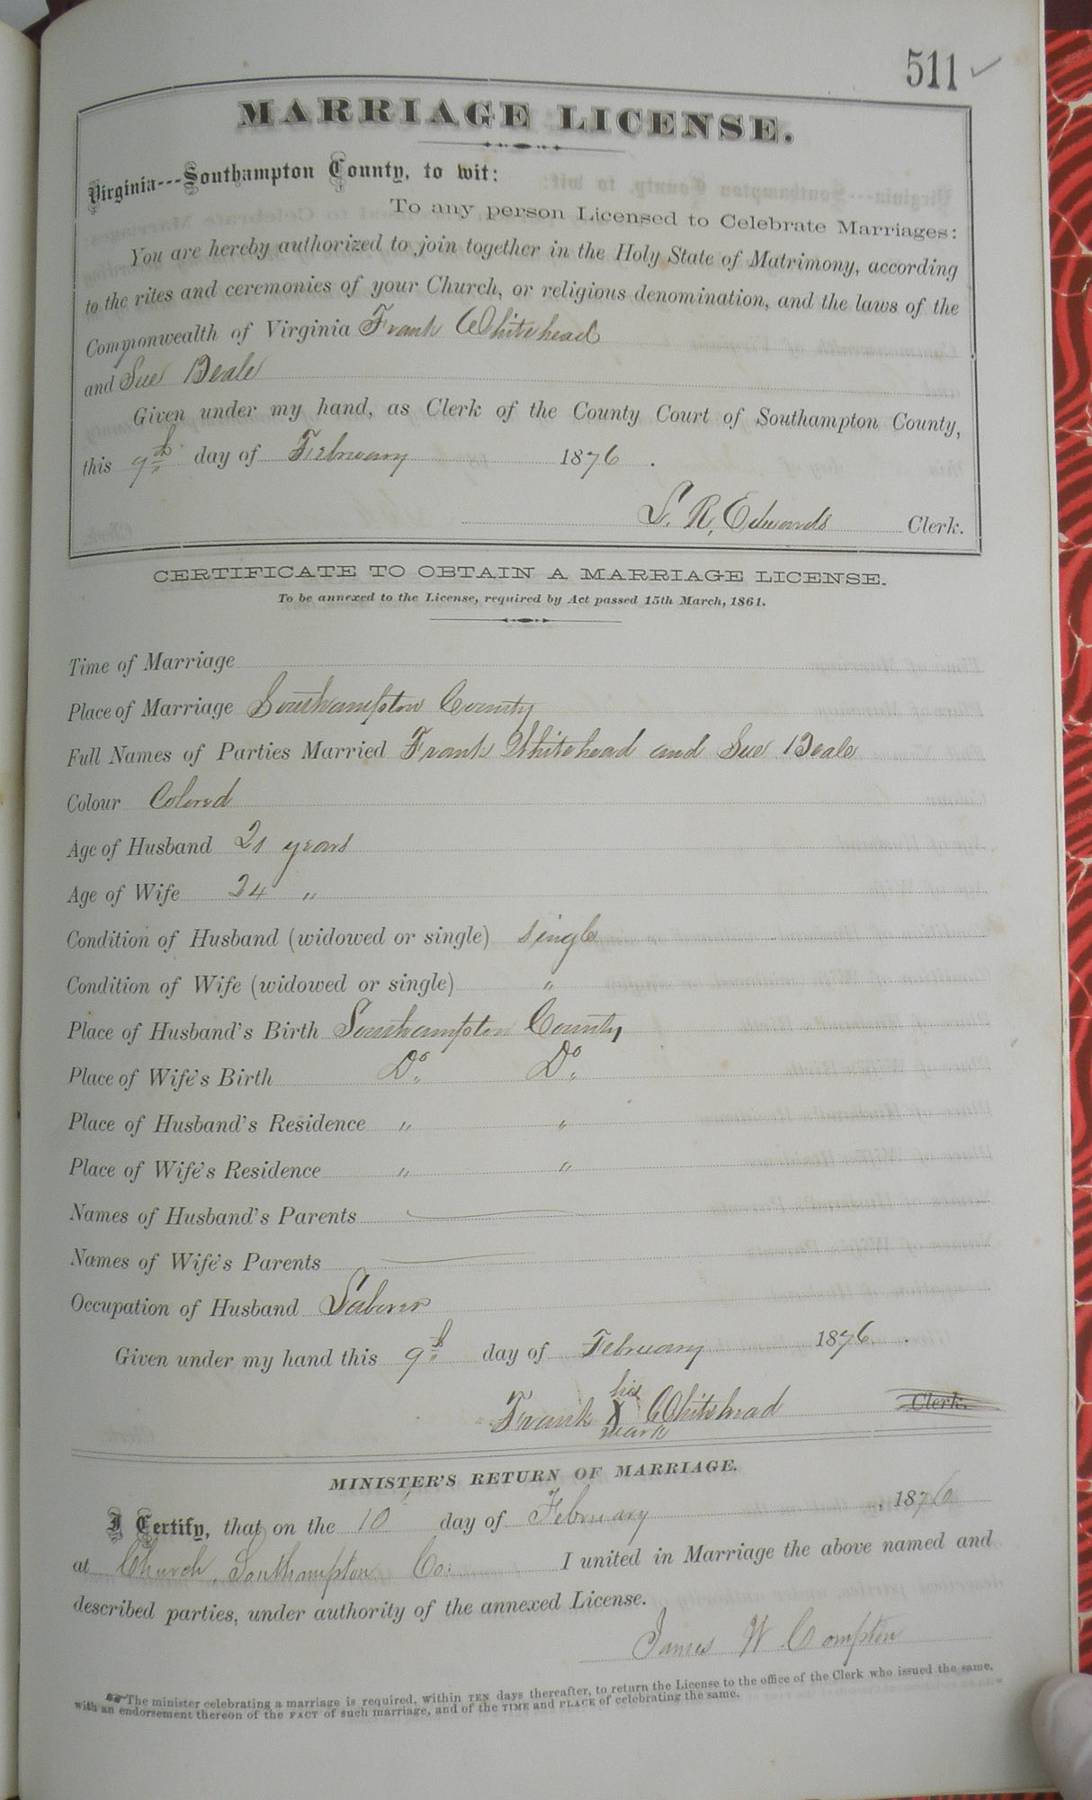 511
MARRIAGE LICENSE.
Virginia---Southampton County, to wit:
To any person Licensed to Celebrate Marriages:
You are hereby authorized to join together in the Holy State of Matrimony, according
to the rites and ceremonies of your Church, or religious denomination, and the laws of the
Commonwealth of Virginia Frank Whitehead
and Sue Beale
Given under my hand, as Clerk of the County Court of Southampton County,
this 9th day of February 1876.
L. R. Edwards Clerk.
CERTIFICATE TO OBTAIN A MARRIAGE LICENSE.
To be annexed to the License, required by Act passed 15th March, 1861.
Time of Marriage
Place of Marriage Southampton County
Full Names of Parties Married Frank Whitehead and Sue Beale
Colour Colored
Age of Husband 21 years
Age of Wife 24 "
Condition of Husband (widowed or single) single
Condition of Wife (widowed or single) "
Place of Husband's Birth Southampton County
Place of Wife's Birth Do Do
Place of Husband's Residence " "
Place of Wife's Residence " "
Names of Husband's Parents
Names of Wife's Parents
Occupation of Husband Laborer
Given under my hand this 9th day of February 1876.
his
Frank X Whitehead Clerk.
mark
MINISTER'S RETURN OF MARRIAGE.
I Certify, that on the 10 day of February, 1876
at Church, Southampton Co: I united in Marriage the above named and
described parties, under authority of the annexed License.
James W. Compton
The minister celebrating a marriage is required, within TEN days thereafter, to return the License to the office of the Clerk who issued the same,
with an endorsement thereon of the FACT of such marriage, and of the TIME and PLACE of celebrating the same.